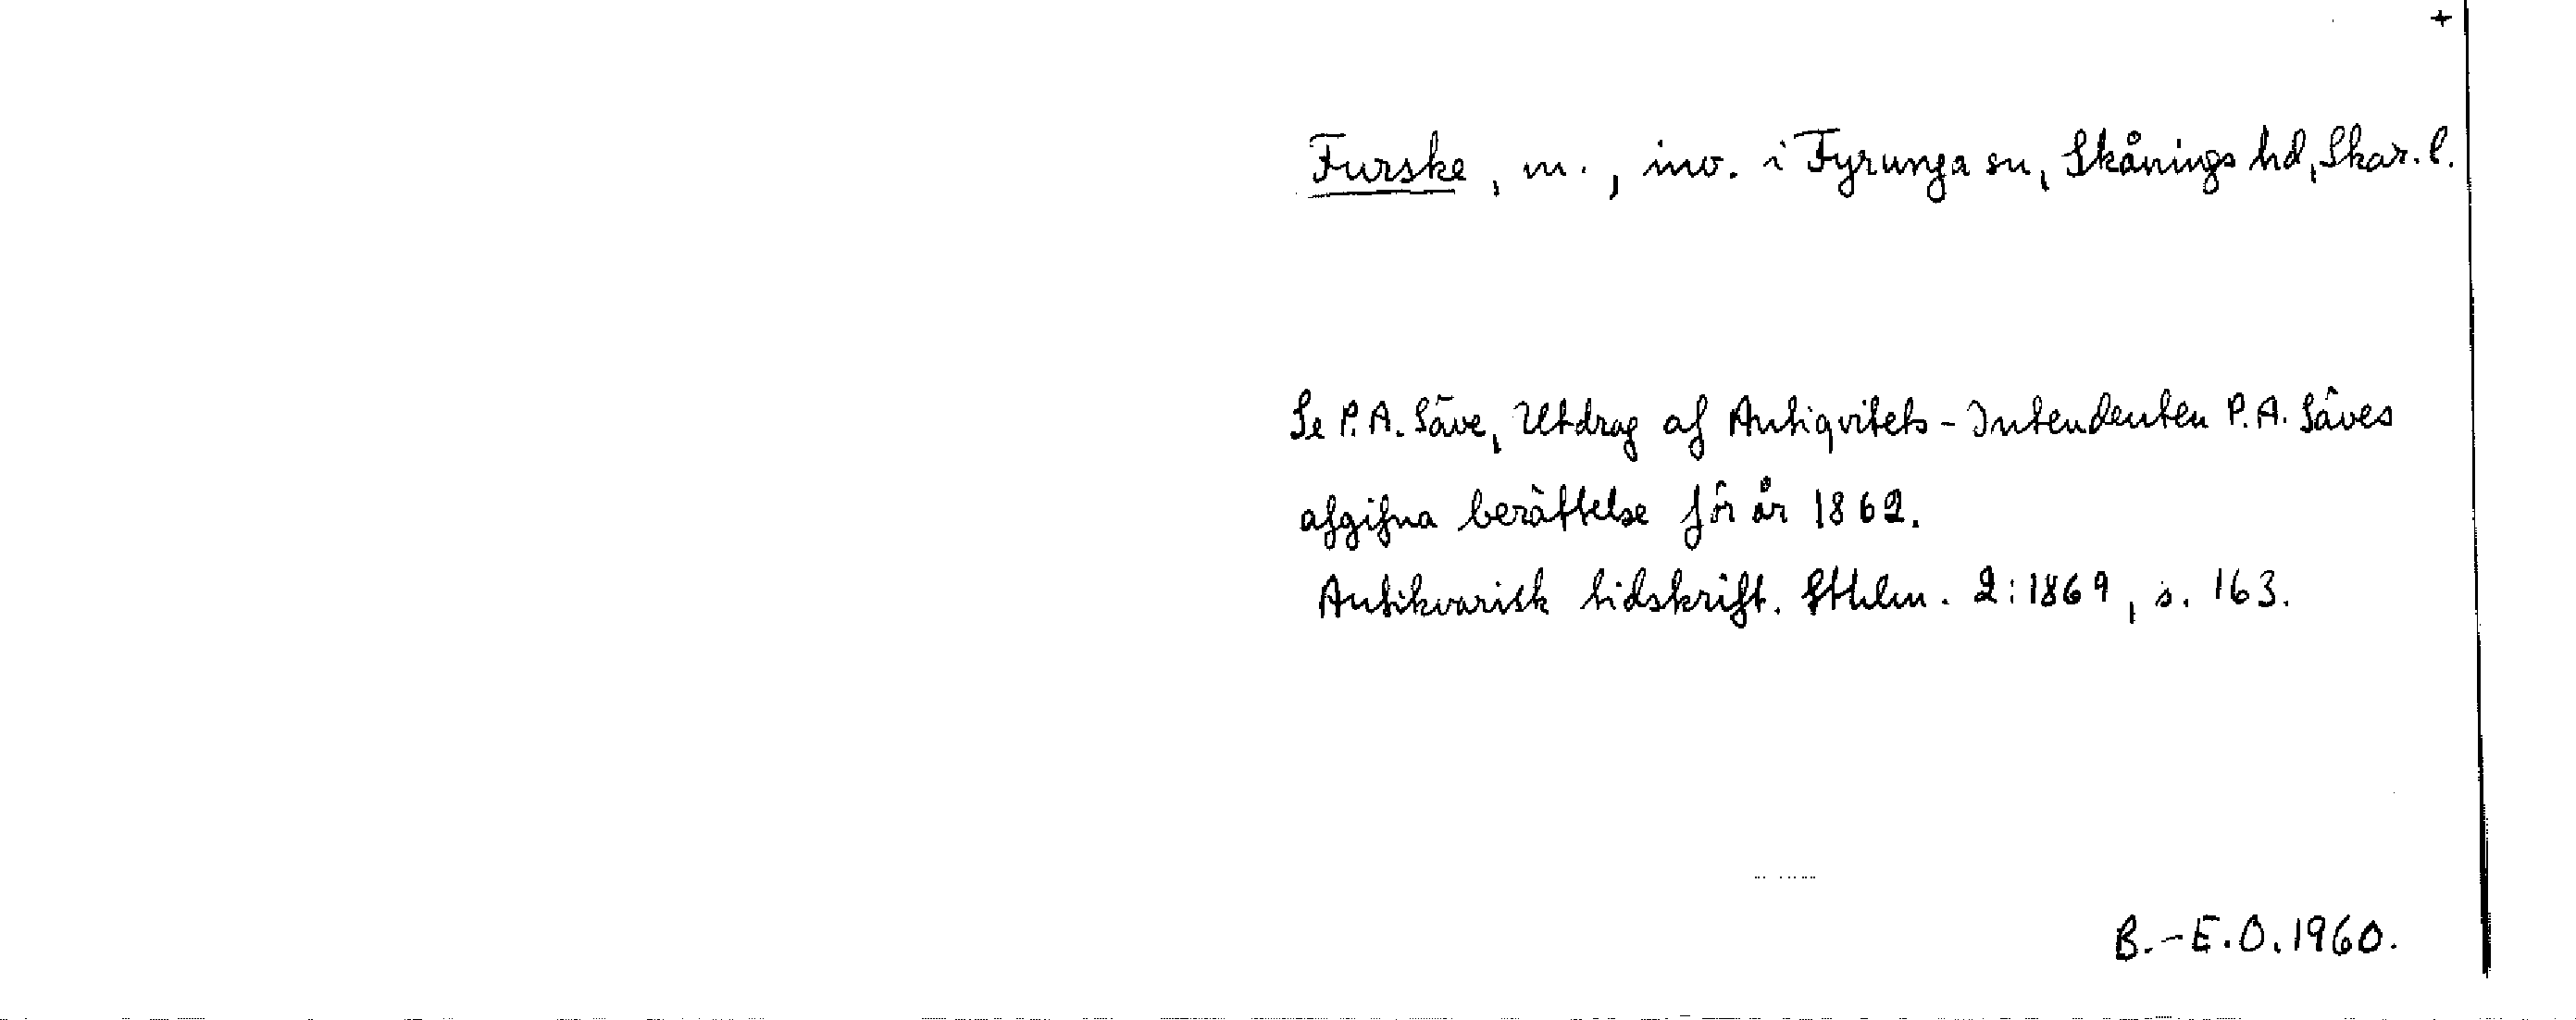 +
Furske, m., inv. i Fyrunga sn, Skånings hd, Skar. l.
Se P.A. Säve, Utdrag af Antiqvitets-Intendenten P.A. Säves
afgifna berättelse för år 1862.
Antikvarisk tidskrift. Sthlm. 2:1869, s. 163.
B.-E.O. 1960.